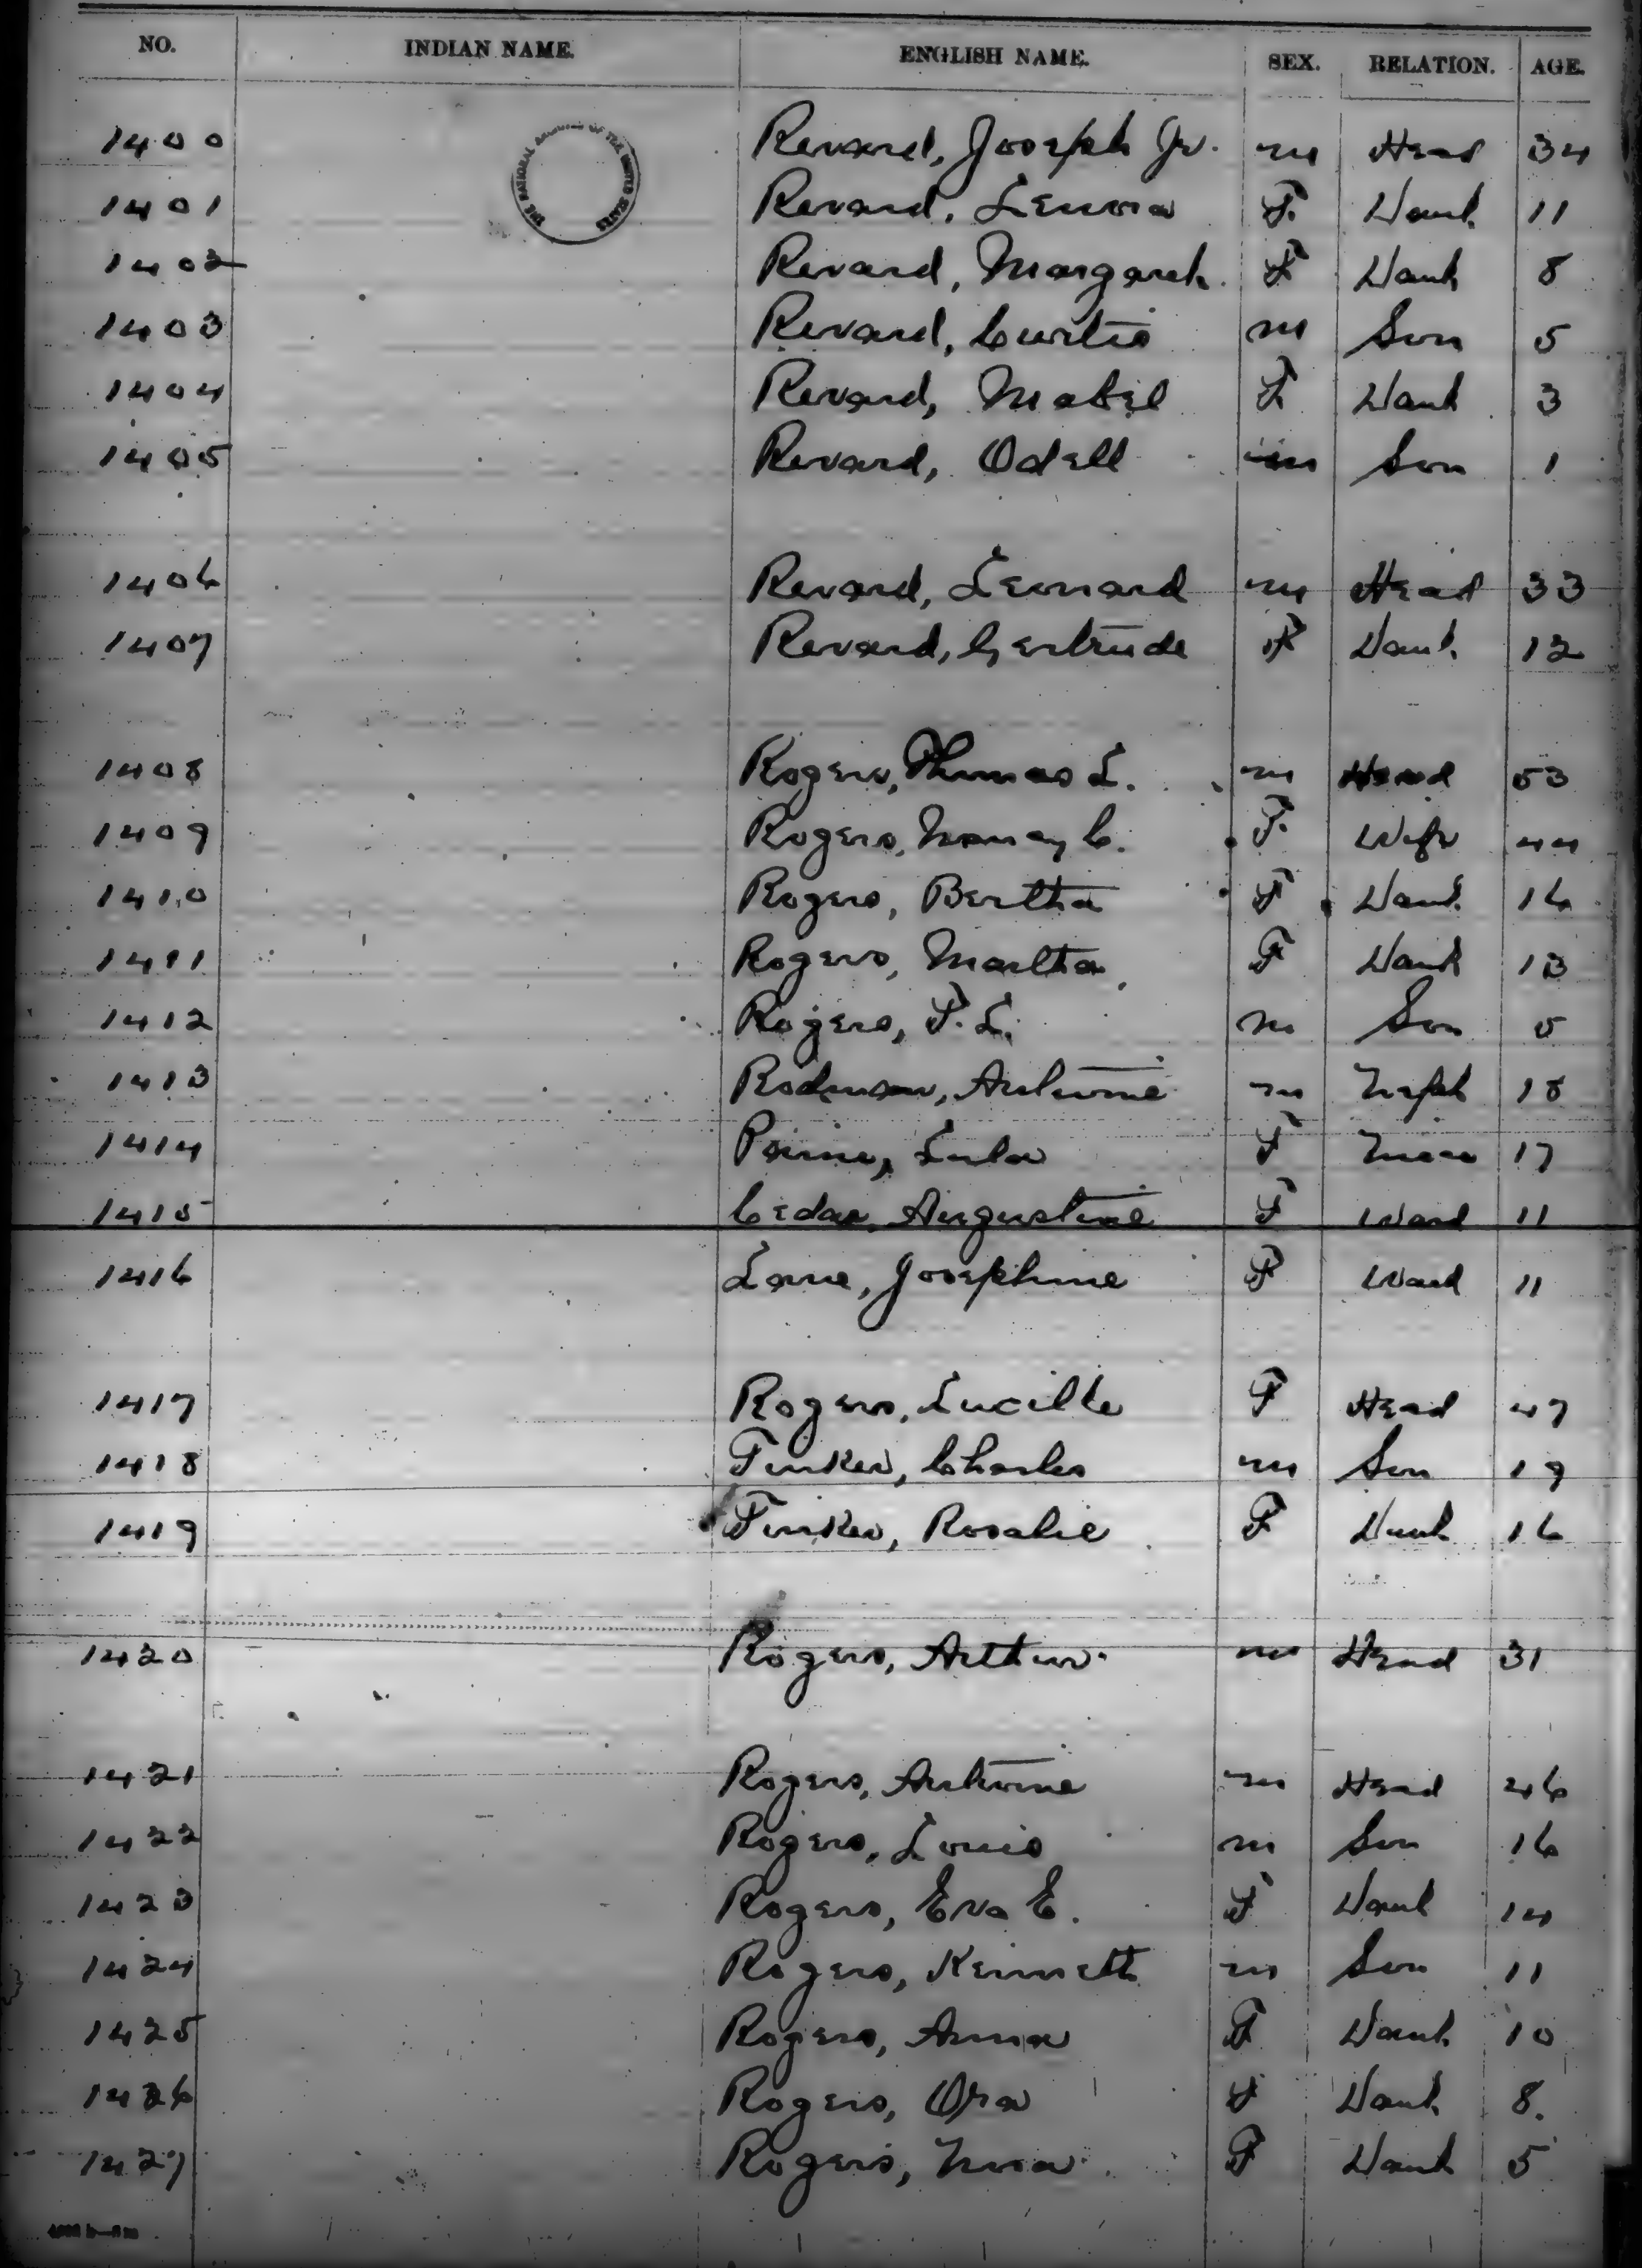 NO. INDIAN NAME. ENGLISH NAME. SEX. RELATION. AGE.
THE NATIONAL ARCHIVES OF THE UNITED STATES
1400 Revard, Joseph Jr. m Head 34
1401 Revard, Lenora F. Daul. 11
1402 Revard, Margaret. F Daul 8
1403 Revard, Curtis m Son 5
1404 Revard, Mabel F Daul 3
1405 Revard, Odell m Son 1
1406 Revard, Leonard m Head 33
1407 Revard, Gertrude F Daul. 12
1408 Rogers, Thomas L. m Head 53
1409 Rogers, Nancy C. F. Wife 44
1410 Rogers, Bertha F Daul. 16
1411 Rogers, Martha F Daul 13
1412 Rogers, T. L. m Son 5
1413 Rodman, Antwine m Neph 18
1414 Lula F Niece 17
1415 Cedar, Augustine F Ward 11
1416 Lane, Josephine F Ward 11
1417 Rogers, Lucille F Head 47
1418 Tinker, Charles m Son 19
1419 Tinker, Rosalie F Daul 16
1420 Rogers, Arthur m Head 31
1421 Rogers, Antwine m Head 46
1422 Rogers, Louis m Son 16
1423 Rogers, Eva E. F Daul 14
1424 Rogers, Kenneth m Son 11
1425 Rogers, Anna F Daul. 10
1426 Rogers, Ora F Daul. 8.
1427 Rogers, Nina F Daul 5